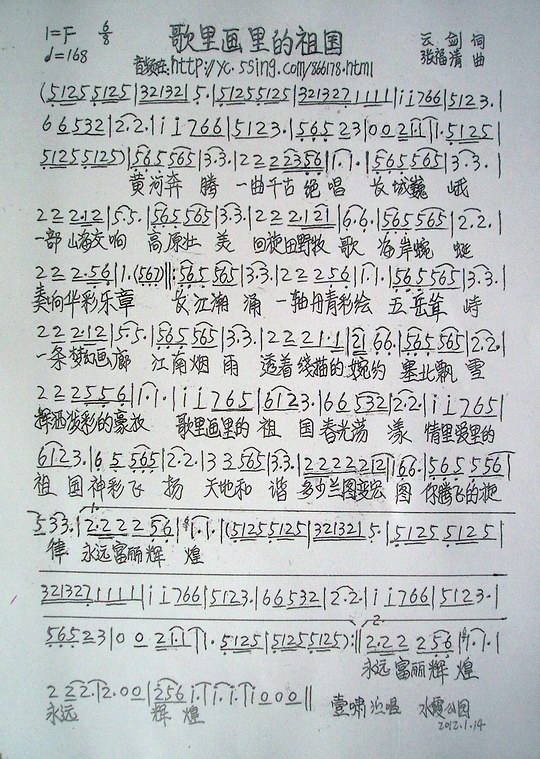 1=F 6/8 歌里画里的祖国 云剑 词
♩=168 音频在:http://yc.5sing.com/866178.html 张福清 曲
(5125 5125|321321 5.|5125 5125|321327 1111|i i766|5123.|
66532|2.2.|i i766|5123.|56523|002i.i|i.5125|
51255125)|565565|3.3.|2 2 2 2356|1.1.|565565|3.3.|
黄河奔 腾 一曲千古绝唱 长城巍 峨
222.12|5.5.|565565|3.3.|2 2 2.121|6.6.|565565|2.2.|
一部山海交响 高原壮 美 回旋田野牧 歌 海岸蜿 蜒
2 2 2.56|1.(567)‖:565565|3.3.|2 2 2 256|1.1.|565565|3.3.|
奏响华彩乐章 长江潮 涌 一轴丹青彩绘 五岳耸 峙
2 2 2.12|5.5.|565565|3.3.|2 2 2 1·1|21 66.|565565|2.2.|
一条梦幻画廊 江南烟 雨 透着线描的婉约 塞北飘 雪
2 2 2556|1.1.|i i765|6123.|66532|2.2|i i765|
挥洒泼彩的豪放 歌里画里的 祖 国春光荡 漾 情里爱里的
6123.|65565|2.2.|33565|3.3.|222221|66.|565556|
祖 国神彩飞 扬 天地和 谐 多少兰图变宏 图 你腾飞的旋
533.|2.22256|1.1.|(51255125|3213215.|51255125|
律 永远富丽辉 煌
3213271111|i i766|5123.|66532|2.2|i i766|5123.|
56523|002i.i|.5125|51255125):‖2.22 256|1.1.|
永远富丽辉 煌
2 22.|2.00|256 i.|i.i.|i000‖ 壹啸沄唱 水霞公园
永远 辉 煌 2012.1.14